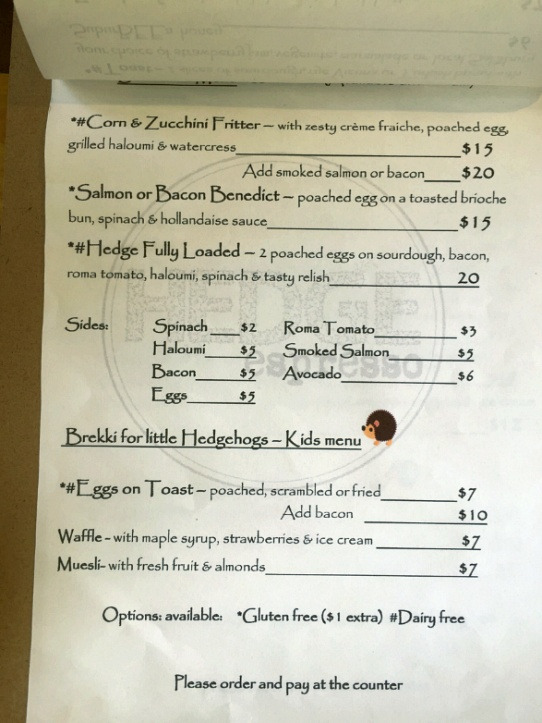 SuburBEE a honey $6
*#Corn & Zucchini Fritter – with zesty crème fraiche, poached egg,
grilled haloumi & watercress $15
Add smoked salmon or bacon $20
*Salmon or Bacon Benedict – poached egg on a toasted brioche
bun, spinach & hollandaise sauce $15
*#Hedge Fully Loaded – 2 poached eggs on sourdough, bacon,
roma tomato, haloumi, spinach & tasty relish 20
HEDGE
espresso
Sides: Spinach $2 Roma Tomato $3
Haloumi $5 Smoked Salmon $5
Bacon $5 Avocado $6
Eggs $5
Brekki for little Hedgehogs – Kids menu
*#Eggs on Toast – poached, scrambled or fried $7
Add bacon $10
Waffle - with maple syrup, strawberries & ice cream $7
Muesli - with fresh fruit & almonds $7
Options: available: *Gluten free ($1 extra) #Dairy free
Please order and pay at the counter